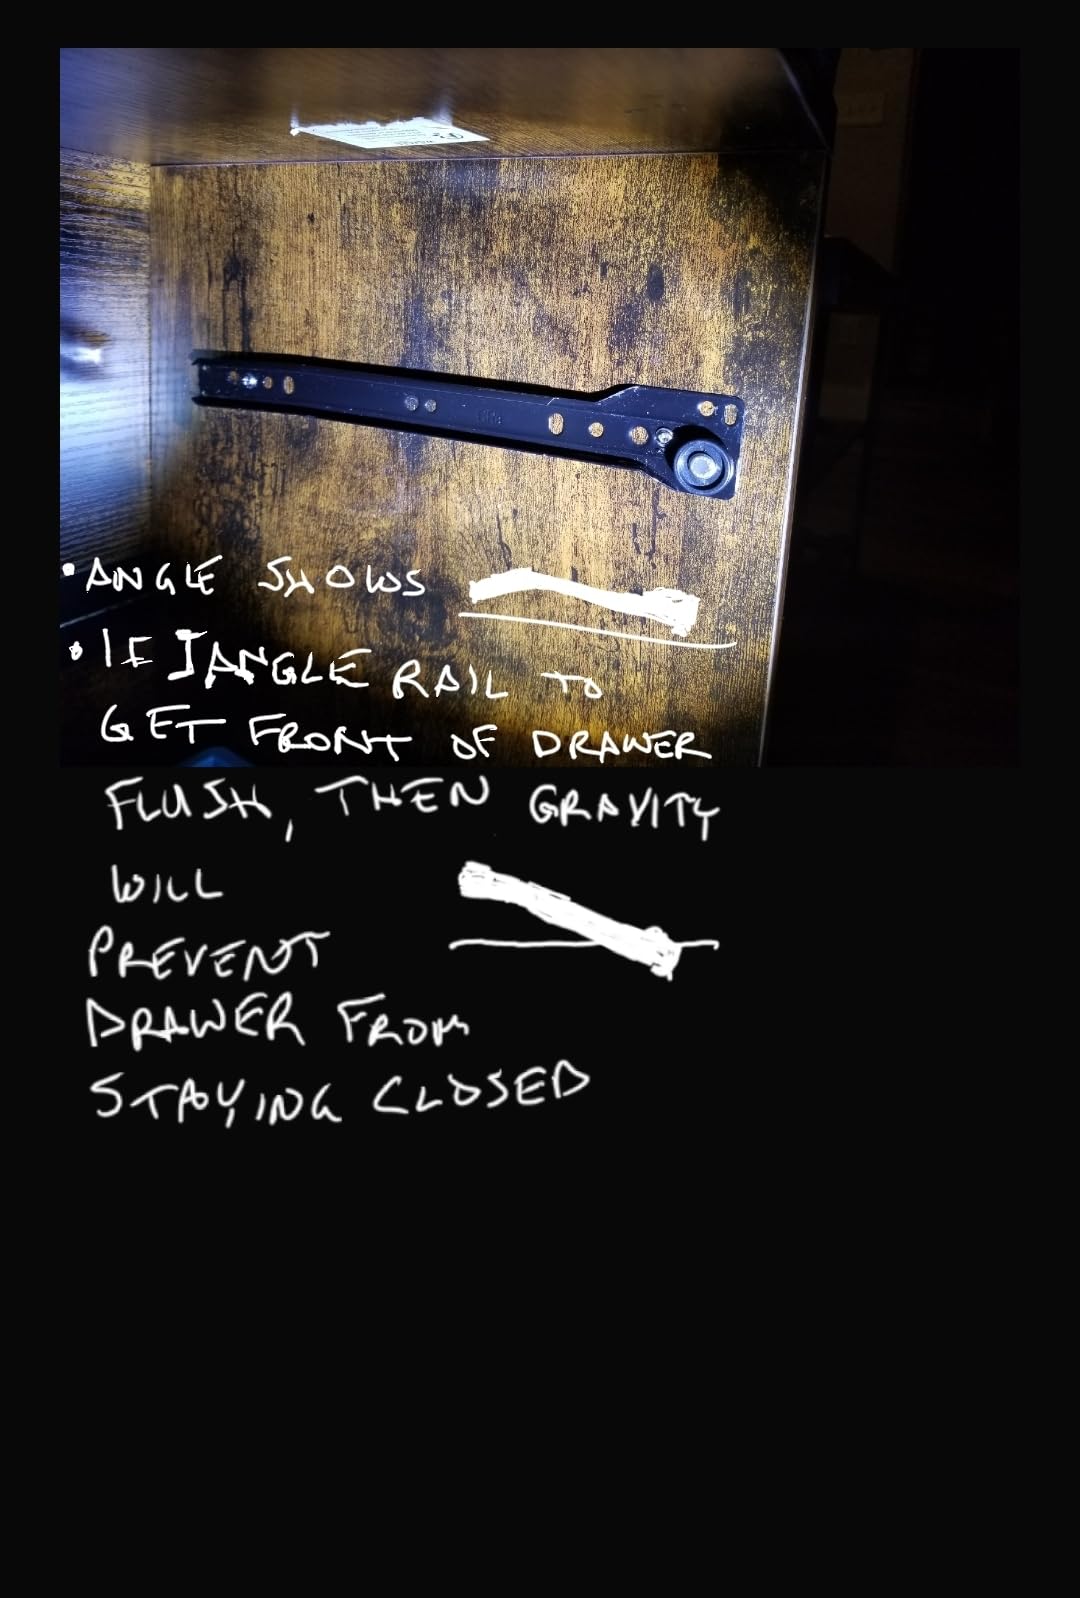 • ANGLE SHOWS
• IF I ANGLE RAIL TO
GET FRONT OF DRAWER
FLUSH, THEN GRAVITY
WILL
PREVENT
DRAWER FROM
STAYING CLOSED